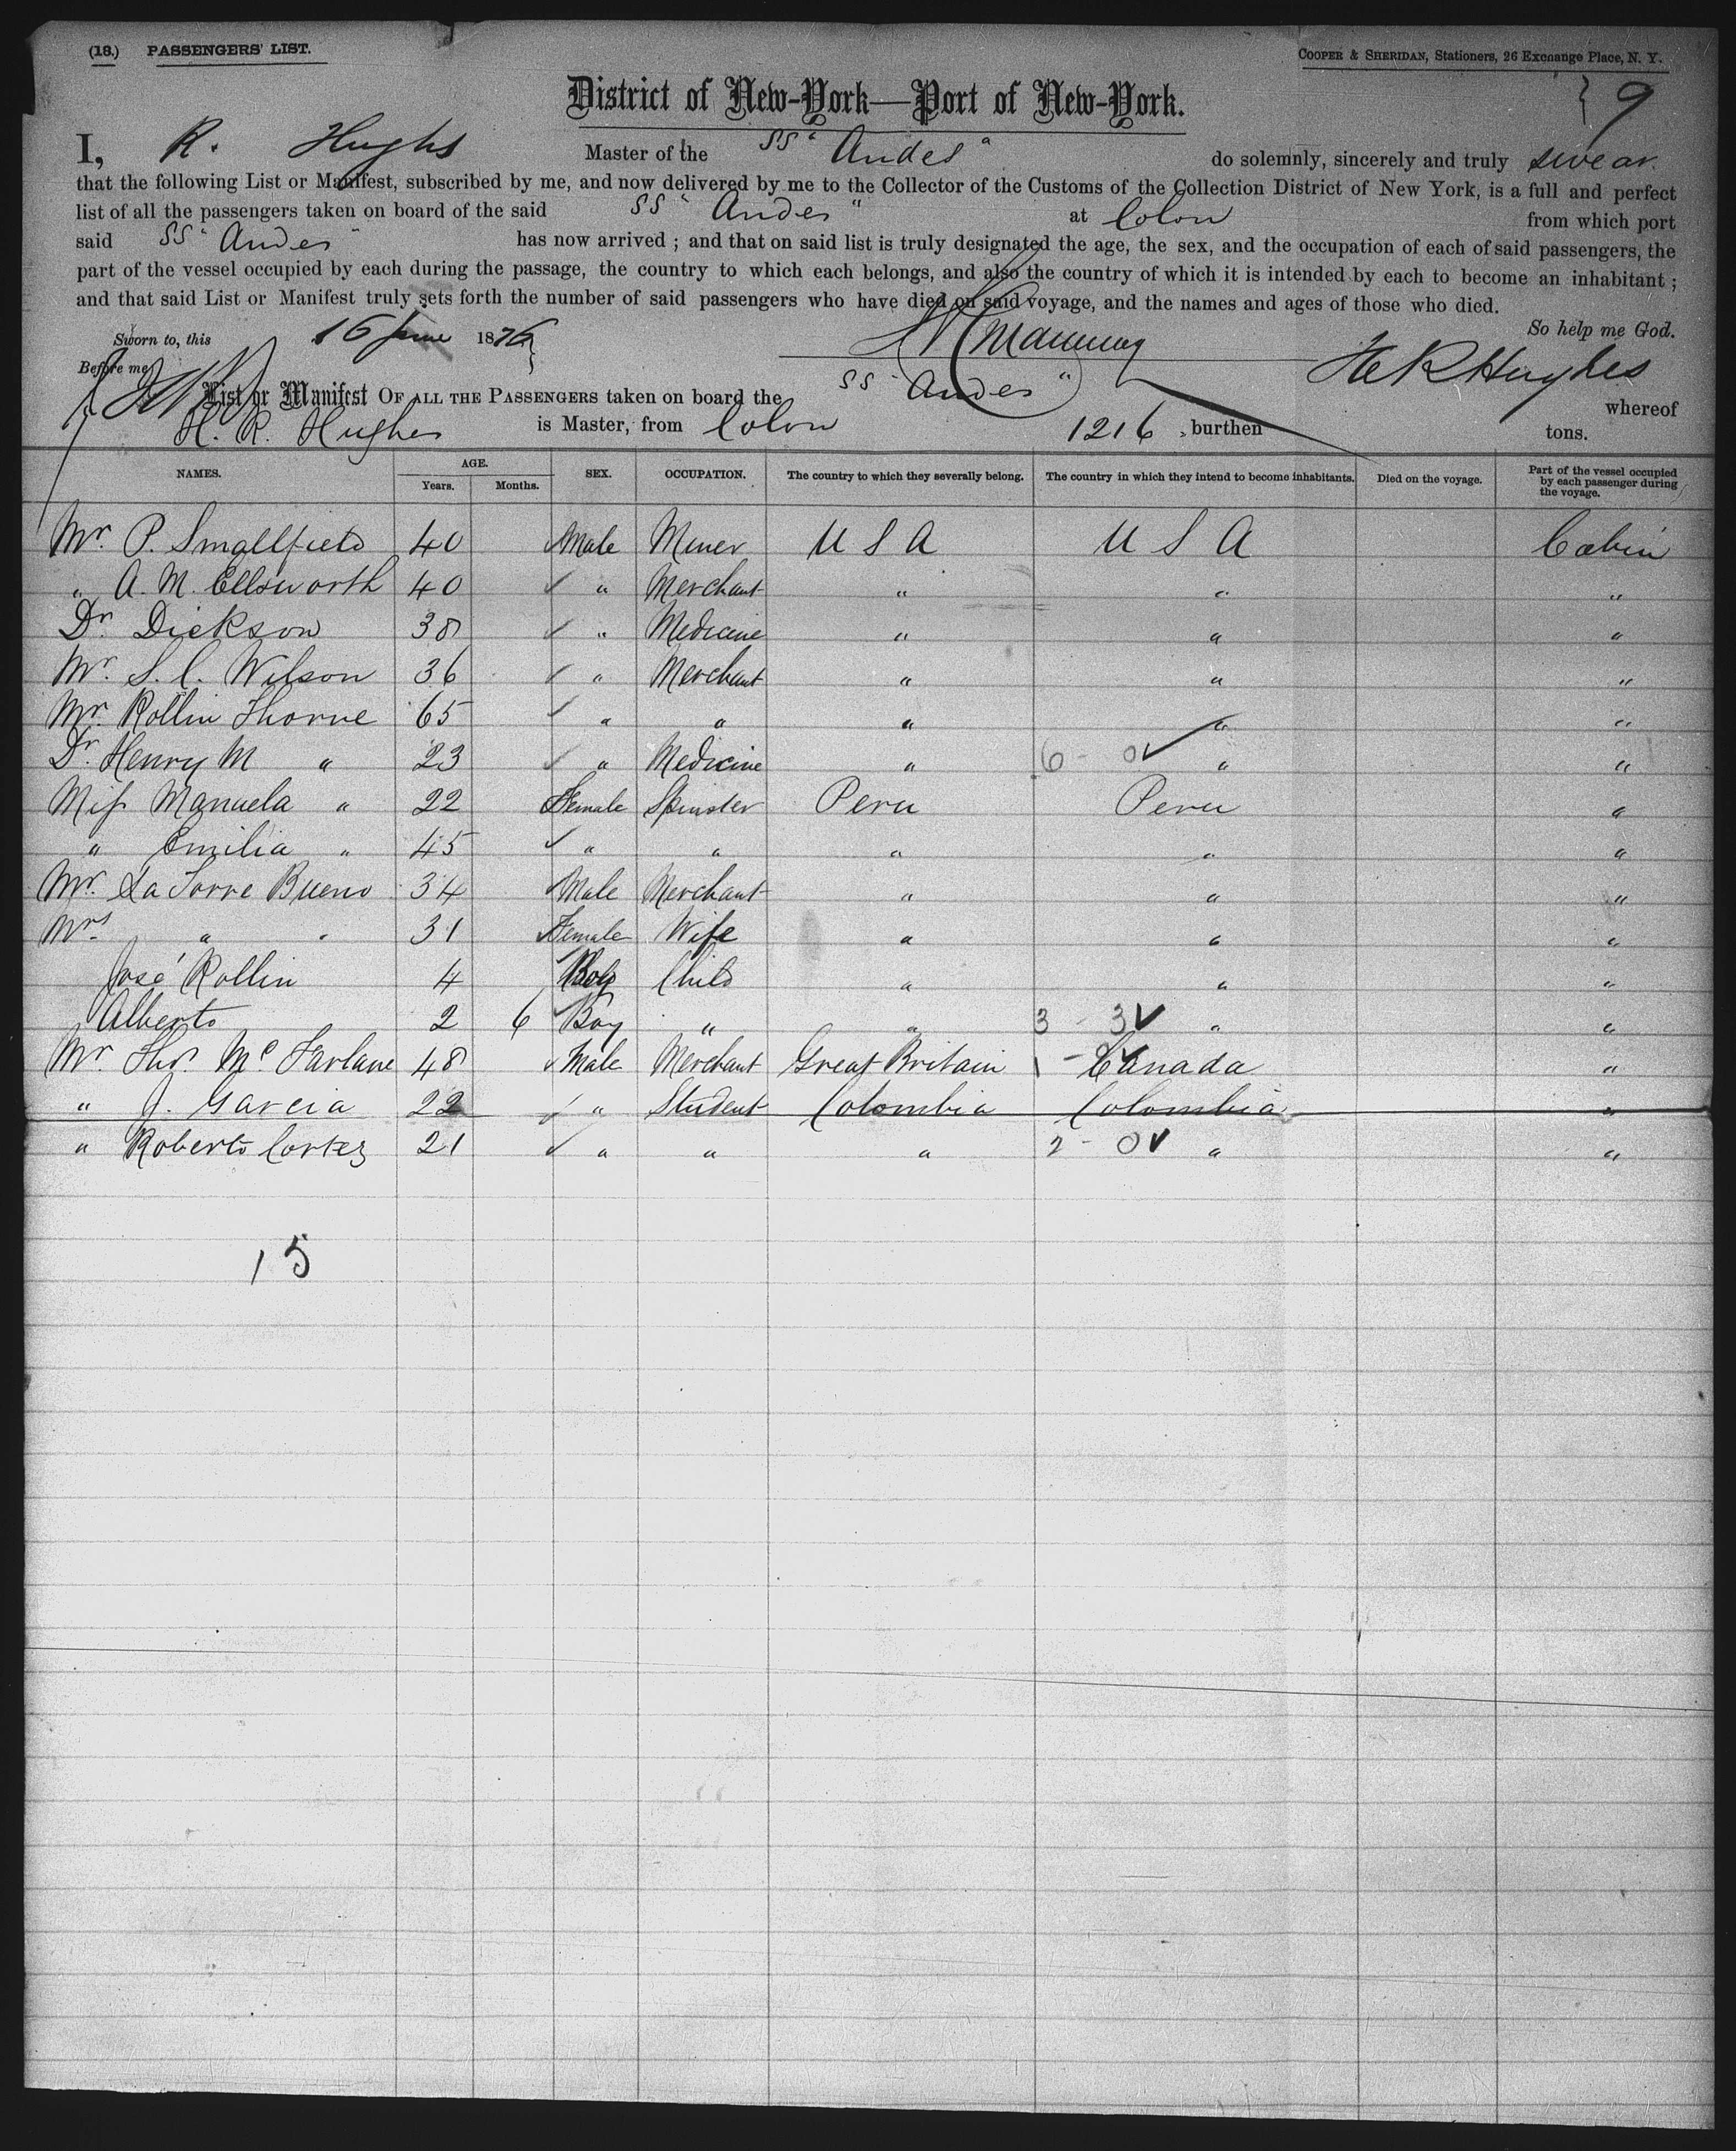 (18.) PASSENGERS' LIST. COOPER & SHERIDAN, Stationers, 26 Exchange Place, N. Y.
District of New-York—Port of New-York. 9
I, R. Hughs Master of the SS "Andes" do solemnly, sincerely and truly swear
that the following List or Manifest, subscribed by me, and now delivered by me to the Collector of the Customs of the Collection District of New York, is a full and perfect
list of all the passengers taken on board of the said SS "Andes" at Colon from which port
said SS "Andes" has now arrived ; and that on said list is truly designated the age, the sex, and the occupation of each of said passengers, the
part of the vessel occupied by each during the passage, the country to which each belongs, and also the country of which it is intended by each to become an inhabitant ;
and that said List or Manifest truly sets forth the number of said passengers who have died on said voyage, and the names and ages of those who died.
So help me God.
Sworn to, this 16 June 1876 Manning
Before me HER Hughes
List or Manifest OF ALL THE PASSENGERS taken on board the SS "Andes" whereof
H. R. Hughes is Master, from Colon 1216 burthen tons.
NAMES. AGE. Years. Months. SEX. OCCUPATION. The country to which they severally belong. The country in which they intend to become inhabitants. Died on the voyage. Part of the vessel occupied by each passenger during the voyage.
Mr. P. Smallfield 40 Male Miner U S A U S A Cabin
" A. M. Ellsworth 40 " Merchant " " "
Dr. Dickson 38 " Medicine " " "
Mr. S. C. Wilson 36 " Merchant " " "
Mr. Rollin Thorne 65 " " " " "
Dr. Henry M " 23 " Medicine " 6 - 0 " "
Miss Manuela " 22 Female Spinster Peru Peru "
" Emilia " 45 " " " " "
Mr. La Torre Bueno 34 Male Merchant " " "
Mrs. " " 31 Female Wife " " "
José Rollin 4 Boy Child " " "
Alberto 2 6 Boy " " 3 - 3 " "
Mr. Thos. McFarlane 48 Male Merchant Great Britain 1 - 0 Canada "
" J. Garcia 22 " Student Colombia Colombia "
" Roberto Cortez 21 " " " 2 - 0 " "
15